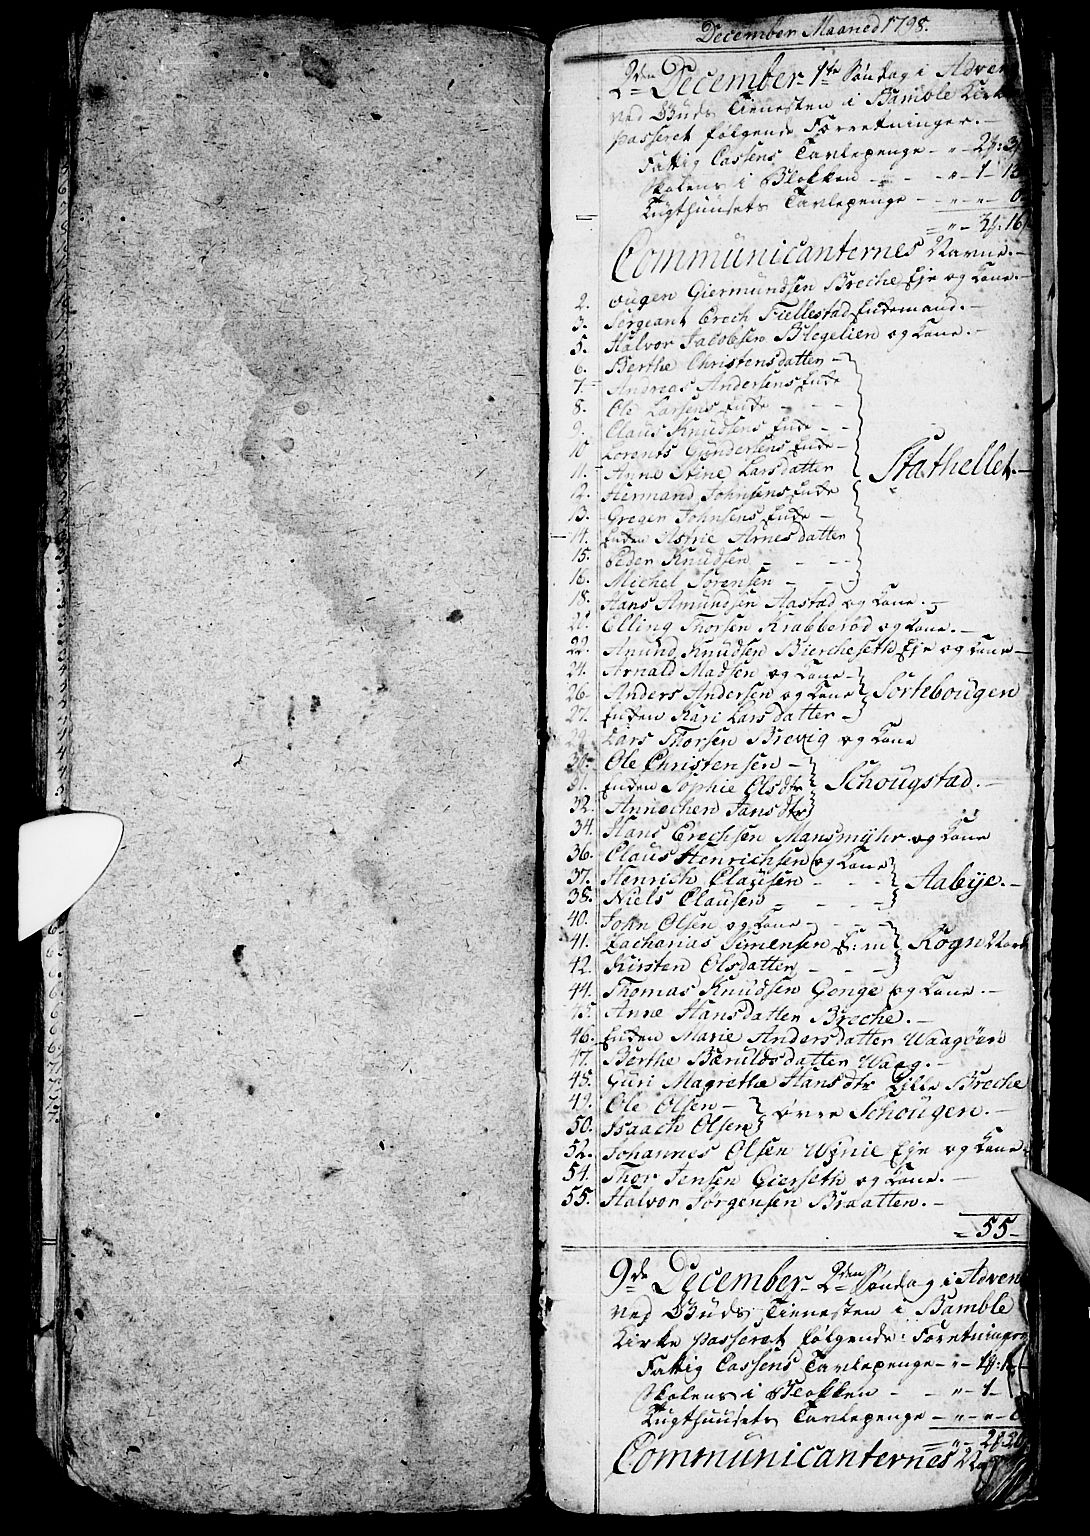 December Maaned 1798.
2den December 1te Søndag i Adven
ved Guds Tienesten i Bamble Kirk
passeret følgende Forretninger.
Fattig Cassens Tavlepenge
Skolens i Blokken
Tugthuusets Tavlepenge
Communicanternes Navne.
2. Giermundsen Breche Eje og Kone.
3. Sergeant Erech Fiellestad Enkemand.
5. Halvor Jacobsen Blegelien og Kone.
6. Berthe Christensdatter
7. Andreas Andersens Enke
8. Ole Larsens Enke
9. Claus Knudsens Enke
10 Lorents Gundersens Enke
11. Anne Stine Larsdatter
Stathellet.
12. Hermand Johnsens Enke
13. Greger Johnsens Enke
14. Enken Astrie Arnesdatter
15. Peder Knudsen
16. Michel Sørensen
18. Hans Amundsen Aastad og Kone.
21. Elling Thorsen Krabberød og Kone.
22. Amund Knudsen Biercheseth Eje og Kone
24. Arnald Madsen og Kone
26. Anders Andersen og Kone Sortebougen
27. Enken Kari Larsdatter
29. Lars Thorsen Brevig og Kone
30. Ole Christensen
31. Enken Sophie Olsdtr Schougstad.
32. Annechen Jansdtr
34. Hans Erechsen Mansmyhr og Kone
36. Claus Henrichsen og Kone
37. Henrich Clausen Aabye.
38. Niels Clausen
40. John Olsen og Kone
41. Zacharias Simensen E: m Rogn
42. Kirsten Olsdatter
44. Thomas Knudsen Gonge og Kone.
45. Anne Hansdatter Breche.
46. Enken Marie Andersdatter Waagøen
47. Berthe Bærulds datter Waag.
48. Guri Magrethe Hansdtr Lille Breche
49. Ole Olsen øvre Schougen.
50. Isaach Olsen
52. Johannes Olsen Winie Eje og Kone
54. Thor Jensen Gierseth og Kone.
55. Halvor Jørgensen Braatten.
55
9de December 2den Søndag i Adven
ved Guds Tienesten i Bamble
Kirke passeret følgende Forretninger
Fattig Cassens Tavlepenge
Skolens i Blokken
Tugthuusets Tavlepenge
Communicanternes